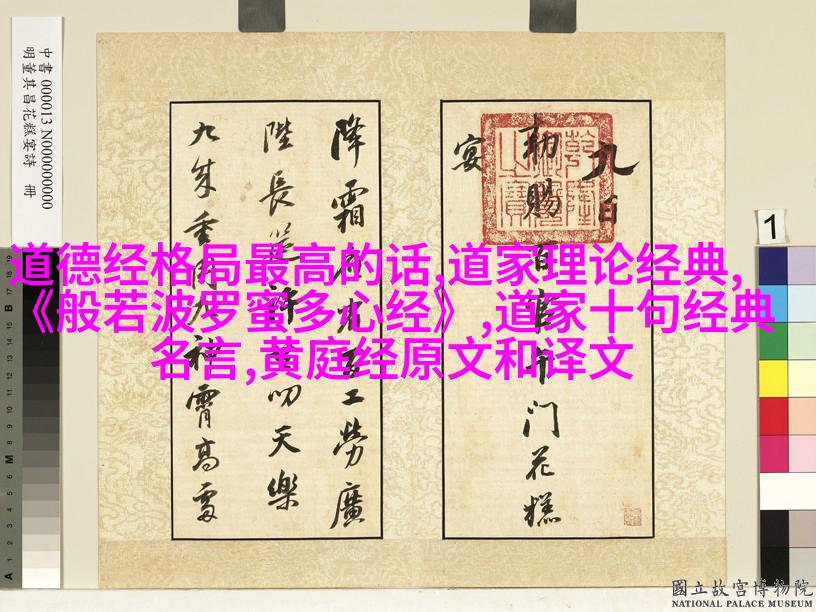 中書 000013 N000000000
明董其昌花糕宴詩 冊
九日
勅賜百官午门花糕
宴
降霜
勞廣
陛長筵許
叨天樂
九成重
霄高露
乾隆御覽之寶
1
道德经格局最高的话,道家理论经典,
《般若波罗蜜多心经》,道家十句经典
名言,黄庭经原文和译文
國立故宮博物院
NATIONAL PALACE MUSEUM